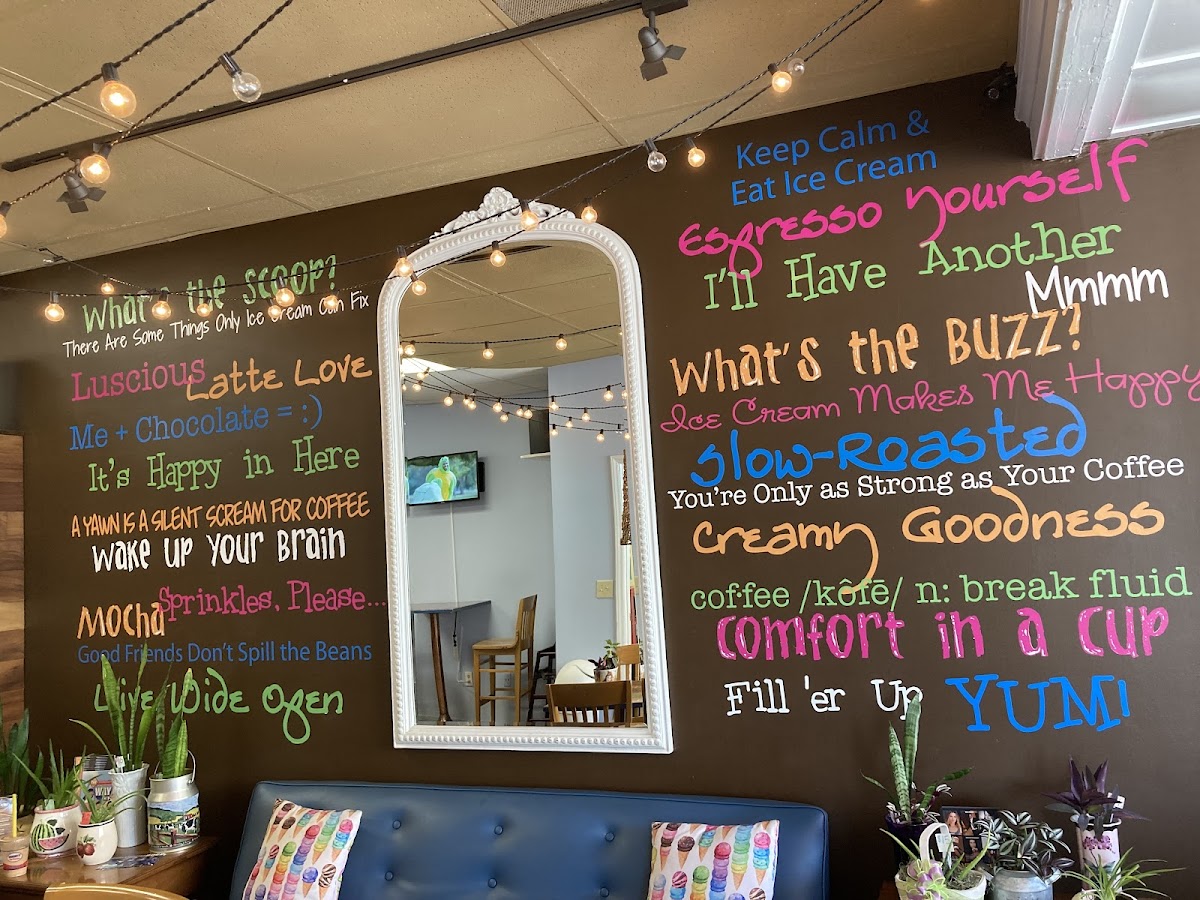 What's the scoop?
There Are Some Things Only Ice Cream Can Fix
Luscious
Latte Love
Me + Chocolate = :)
It's Happy in Here
A YAWN IS A SILENT SCREAM FOR COFFEE
Wake up your Brain
Mocha
Sprinkles, Please...
Good Friends Don't Spill the Beans
Wide Open
Keep Calm &
Eat Ice Cream
Espresso Yourself
I'll Have Another
Mmmm
What's the BUZZ?
Ice Cream Makes Me Happy
Slow-Roasted
You're Only as Strong as Your Coffee
Creamy Goodness
coffee /kôfē/ n: break fluid
Comfort in a Cup
Fill 'er Up
YUM!